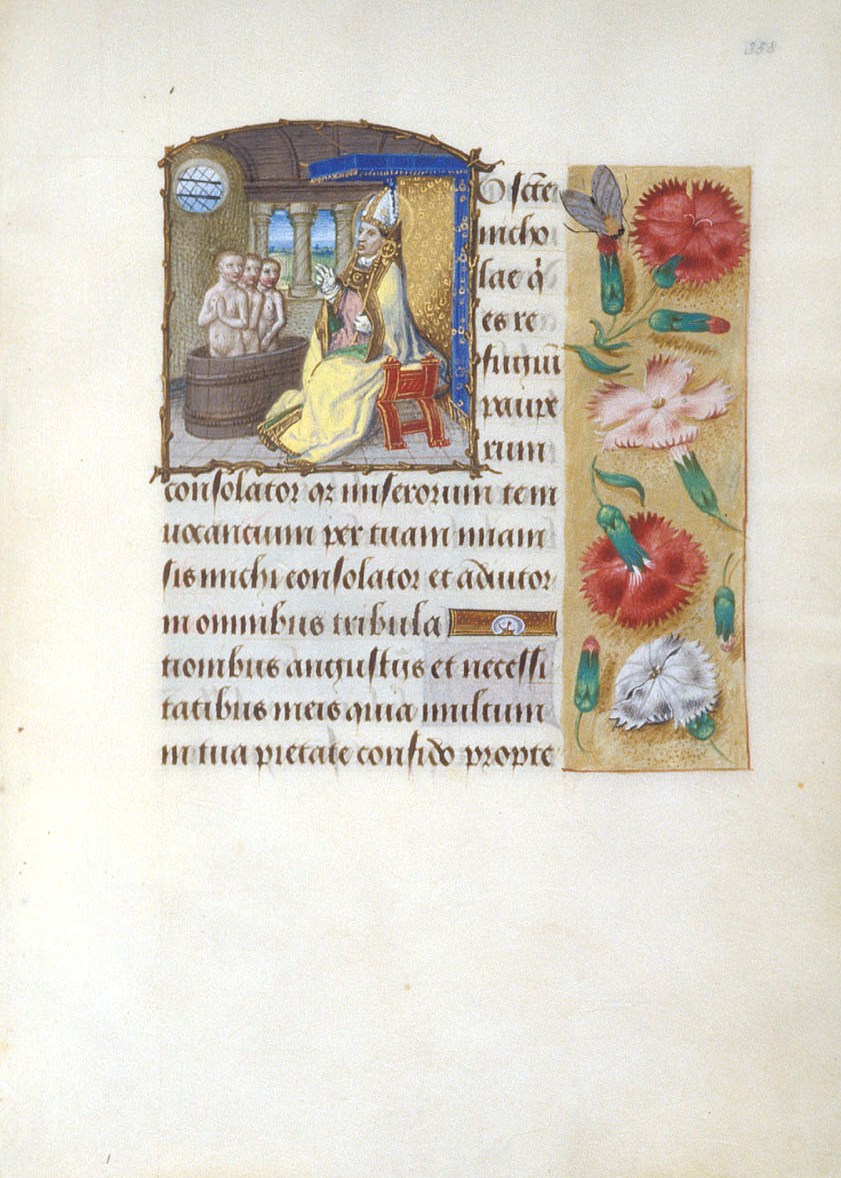 358
O sc̄te
nicho
lae q̇
es re
fugiū
paupe
rum
consolator q; miserorum tem
uocancium per tuam m̄iam
sis michi consolator et adiutor
in omnibus tribula
tionibus angustijs et necessi
tatibus meis quia multum
in tua pietate confido propte